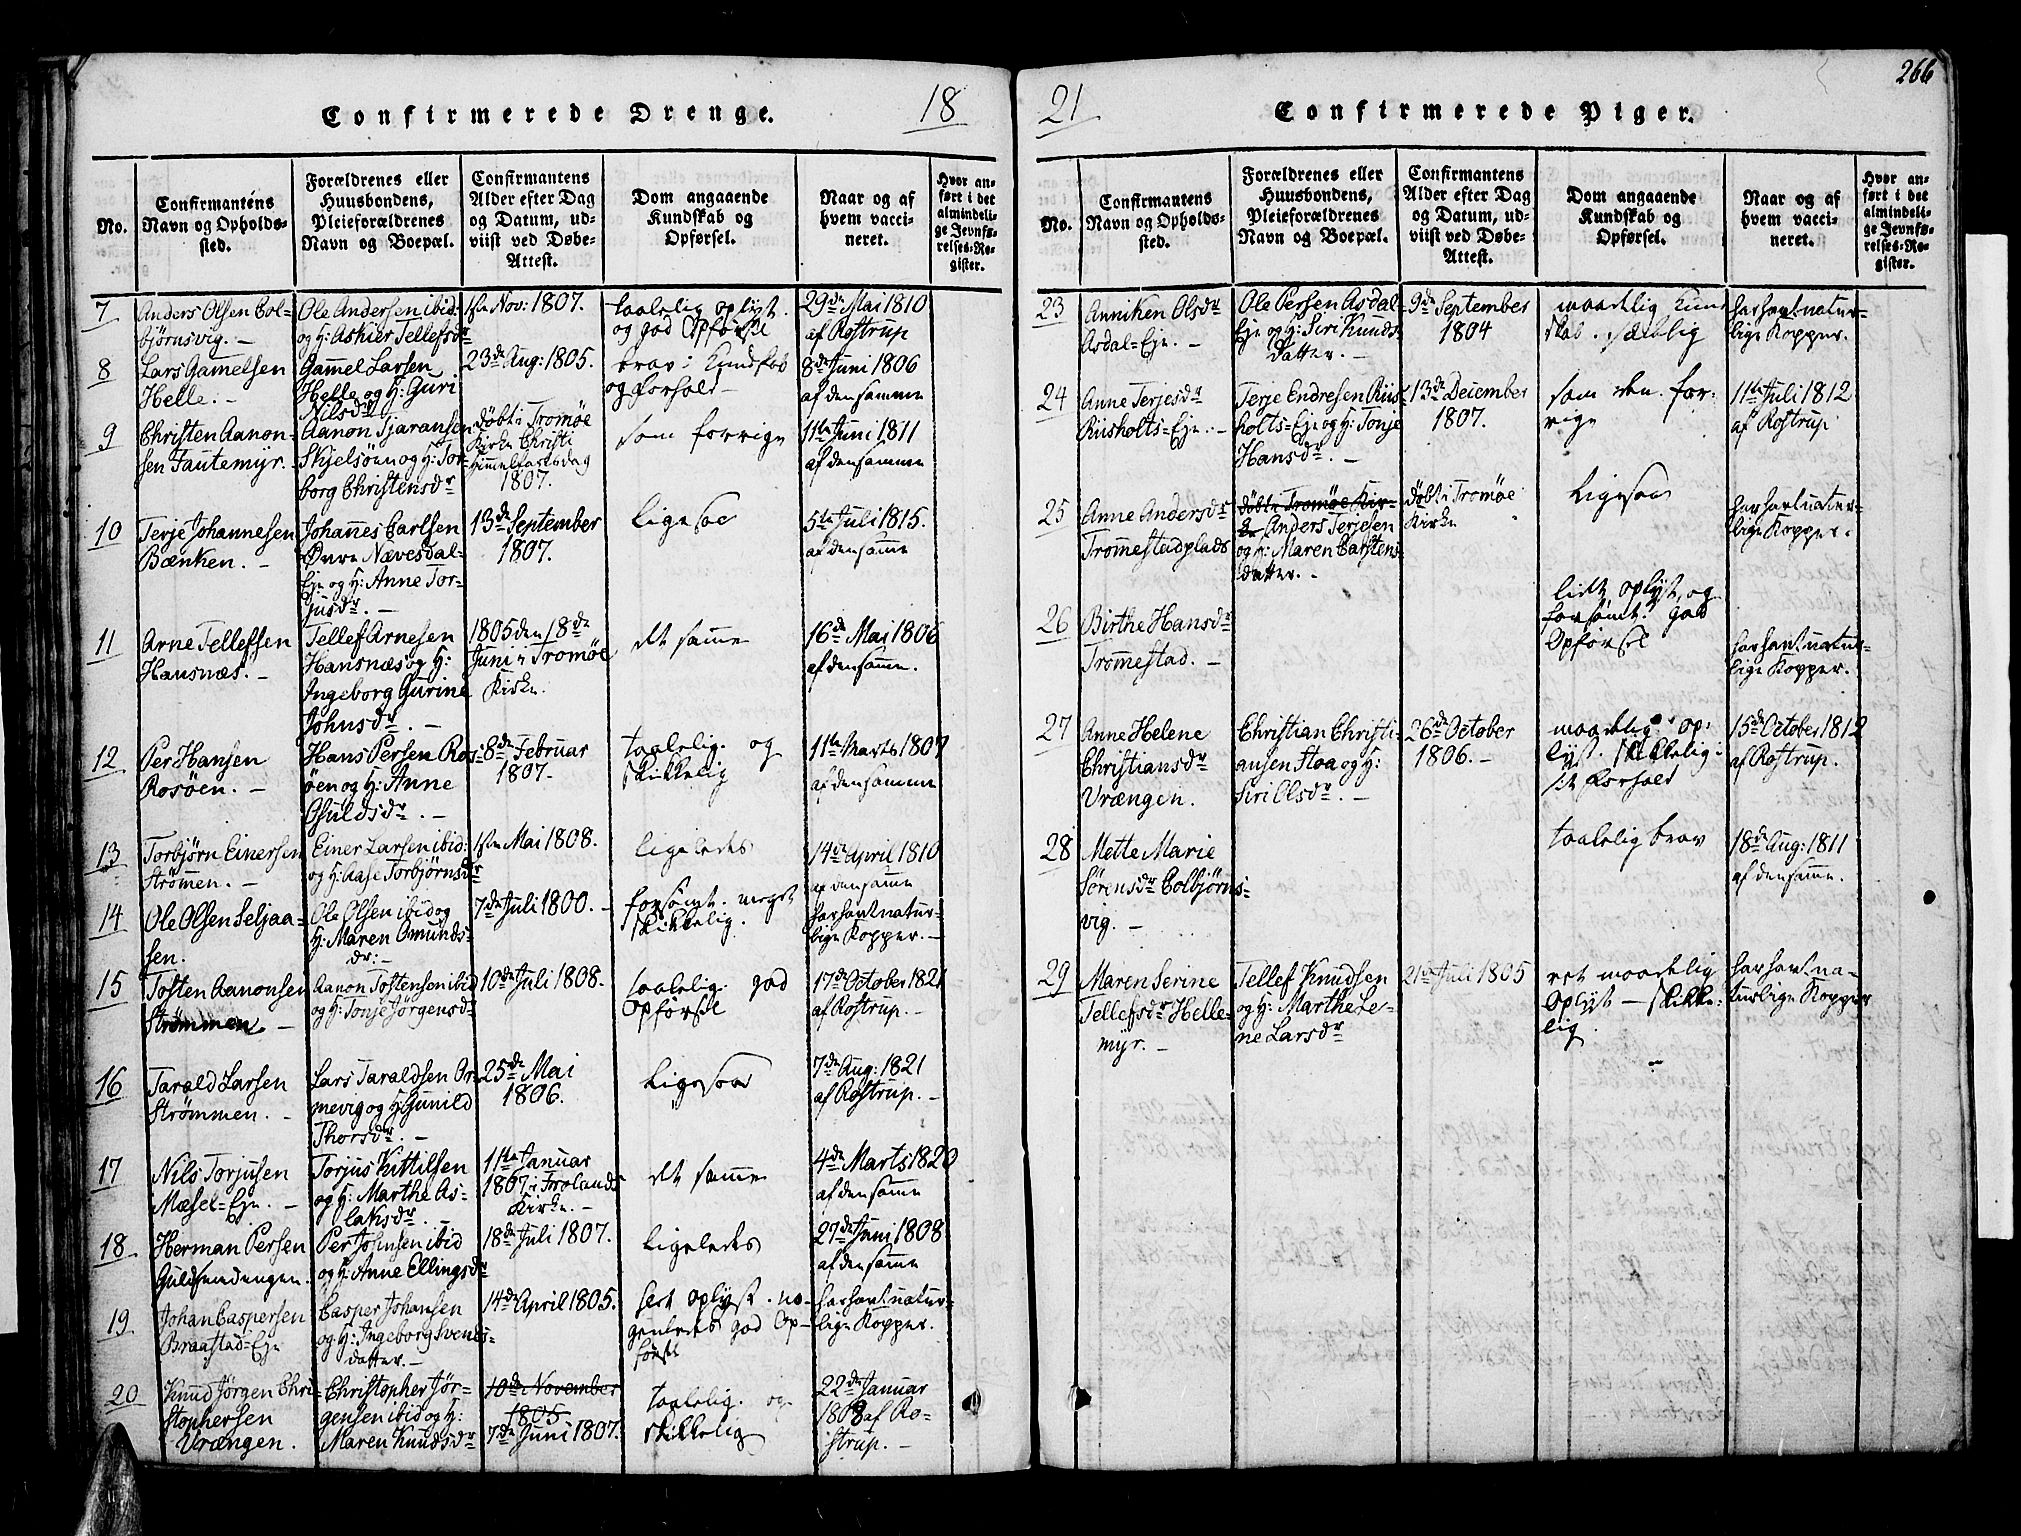 266
Confirmerede Drenge.
18
No.
Confirmantens
Navn og Opholds-
sted.
Forældrenes eller
Huusbondens,
Pleieforældrenes
Navn og Boepæl.
Confirmantens
Alder efter Dag
og Datum, ud-
viist ved Døbe-
Attest.
Dom angaaende
Kundskab og
Opførsel.
Naar og af
hvem vacci-
neret.
Hvor an-
ført i det
almindeli-
ge Jevnfø-
relses-Re-
gister.
7
Anders Olsen Col-
bjørnsvig. -
Ole Andersen ibid:
og H: Askier Tellefsdr
1ste Nov: 1807.
taalelig oplyst.
og god Opførsel
29de Mai 1810
af Rostrup
8
Lars Gamelsen
Helle. -
Gamel Larsen
Helle og H: Guri
Nilsdr
23de Aug: 1805.
brav i Kundskab
og Forhold -
8de Juni 1806
af den samme
9
Christen Aanon-
sen Tautemyr. -
Aanon Tjaransen
Skjelsøen og H: Tor-
borg Christensdr
døbt i Tromøe
Kirke Christi
Himmelfartsdag
1807.
som forrige
11te Juni 1811
af den samme
10
Terje Johannesen
Bænken. -
Johanes Carlsen
Øvre Nævesdal-
Eje og H: Anne Tor-
jusdr. -
13de September
1807.
ligesaa
5te Juli 1815.
af den samme
11
Arne Tellefsen
Hansnæs. -
Tellef Arnesen
Hansnæs og H:
Ingeborg Gurine
Johnsdr. -
1805 den 18de
Juni i Tromøe
Kirke.
det samme
16de Mai 1806
af den samme.
12
Per Hansen
Rosøen. -
Hans Persen Ros-
øen og H: Anne
Osuldsdr. -
8de Februar
1807.
taalelig og
skikkelig
11te Marts 1807
af den samme
13
Torbjørn Einersen
Strømmen. -
Einer Larsen ibid:
og H: Aase Torbjørnsdr
1ste Mai 1808.
ligeledes
14de April 1810
af den samme
14
Ole Olsen Seljaa-
sen.
Ole Olsen ibid og
H: Maren Omunds-
dr: -
7de Juli 1800. -
forsømt. meget
skikkelig.
har havt natur-
lige Kopper. -
15
Tosten Aanonsen
Strømmen. -
Aanon Tostensen ibid
og H: Tonje Jørgensd-
10de Juli 1808.
taalelig. god
Opførsel
17de October 1821
af Rostrup.
16
Tarald Larsen
Strømmen. -
Lars Taraldsen Or-
mevig og H: Gunild
Thorsdr. -
25de Mai
1806.
ligesaa
7de Aug: 1821
af Rostrup. -
17
Nils Torjusen
Mæsel-Eje. -
Torjus Kittilsen
og H: Marthe As-
laksdr. -
11te Januar
1807 i Frolands
Kirke. -
det samme
4de Marts 1820
af den samme
18
Herman Persen
Guldsmedengen.
Per Johnsen ibid
og H: Anne Ellingsdr
18de Juli 1807.
ligeledes
27de Juni 1808
af den samme
19
Johan Caspersen
Braastad-Eje
Casper Johansen
og H: Ingeborg Svends-
datter. -
14de April 1805.
slet oplyst. no-
genledes god Op-
førsel
har havt natur-
lige Kopper.
20
Knud Jørgen Chri-
stophersen
Vrængen.
Christopher Jør-
gensen ibid og H:
Maren Knudsdr
10de November
1805
7de Juni 1807.
taalelig og
skikkelig
22de Januar
1808 af Ro-
strup. -
21
Confirmerede Piger.
No.
Confirmantens
Navn og Opholds-
sted.
Forældrenes eller
Huusbondens,
Pleieforældrenes
Navn og Boepæl.
Confirmantens
Alder efter Dag
og Datum, ud-
viist ved Døbe-
Attest.
Dom angaaende
Kundskab og
Opførsel.
Naar og af
hvem vacci-
neret.
Hvor an-
ført i det
almindeli-
ge Jevnfø-
relses-Re-
gister.
23
Anniken Olsdr
Asdal-Eje. -
Ole Persen Asdal-
Eje og H: Siri Knuds-
datter. -
9de September
1804
maadelig Kund-
skab. sædelig
har havt natur-
lige Kopper.
24
Anne Terjesdr
Riisholts-Eje. -
Terje Endresen Riis-
holts-Eje og H: Tonje
Hansdr. -
13de December
1807.
som den for-
rige
11te Juli 1812
af Rostrup
25
Anne Andersdr
Tromestadplads
døbt i Tromøe Kir-
ke Anders Terjesen
og H: Maren Carstens-
datter. -
døbt i Tromøe
Kirke
ligesaa
har havt natur-
lige Kopper.
26
Birthe Hansdr
Tromestad. -
lidt oplyst, og
forsømt. god
Opførsel
har havt natur-
lige Kopper.
27
Anne Helene
Christiansdr
Vrængen.
Christian Christi-
ansen Stoa og H:
Siri Olsdr. -
26de October
1806. -
maadelig op-
lyst. skikkelig
i sit Forhold
15de October 1812
af Rostrup.
28
Mette Marie
Sørensdr Colbjørns-
vig. -
taalelig brav
18de Aug: 1811
af den samme.
29
Maren Serine
Tellefsdr Helle-
myr. -
Tellef Knudsen
og H: Marthe Le-
ne Larsdr
21de Juli 1805
ret maadelig
Oplyst - skikke-
lig.
har havt na-
turlige Kopper